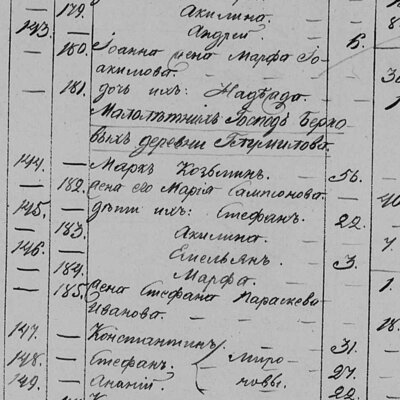 — 179. Акилина. —
143. — Андрей. 6.
— 180. Іоанна жена Марфа Іо-
акимова. — —
— 181. дочь ихъ: Надежда. —
Малолѣтнихъ Господъ Верхо-
выхъ деревни
144. — Маркъ Козьминъ. — 56.
— 182. жена его Марія Сампсонова. —
145. — дѣти ихъ: Стефанъ. 22.
— 183. Акилина. —
146. — Емельянъ. 3.
— 184. Марфа. —
— 185. жена Стефана Параскева
Иванова. — — —
147. — Константинъ. 31.
148. — Стефанъ. Миро- 27.
149. — Ананій. новы. 22.